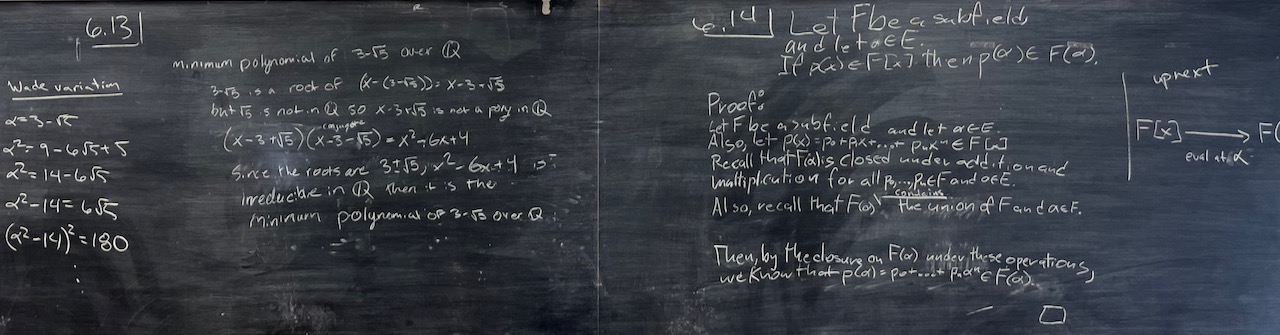 6.13
Wade variation
α=3-√5
α²=9-6√5+5
α²=14-6√5
α²-14=6√5
(α²-14)²=180
⋮
minimum polynomial of 3-√5 over ℚ
3-√5 is a root of (x-(3-√5))=x-3-√5
but √5 is not in ℚ so x-3+√5 is not a poly in ℚ
conjugate
(x-3+√5)(x-3-√5)=x²-6x+4
Since the roots are 3±√5, x²-6x+4 is
irreducible in ℚ then it is the
minimum polynomial of 3-√5 over ℚ.
6.14 Let F be a subfield
and let α∈E.
If p(x)∈F[x] then p(α)∈F(α).
Proof:
Let F be a subfield and let α∈E.
Also, let p(x)=p₀+p₁x+...+pₙxⁿ∈F[x]
Recall that F(α) is closed under addition and
multiplication for all p₀,...,pₙ∈F and α∈E.
contains
Also, recall that F(α) the union of F and α∈F.
Then, by the closure on F(α) under these operations,
we know that p(α)=p₀+...+pₙαⁿ∈F(α).
□
up next
F[x] → F(
eval at α